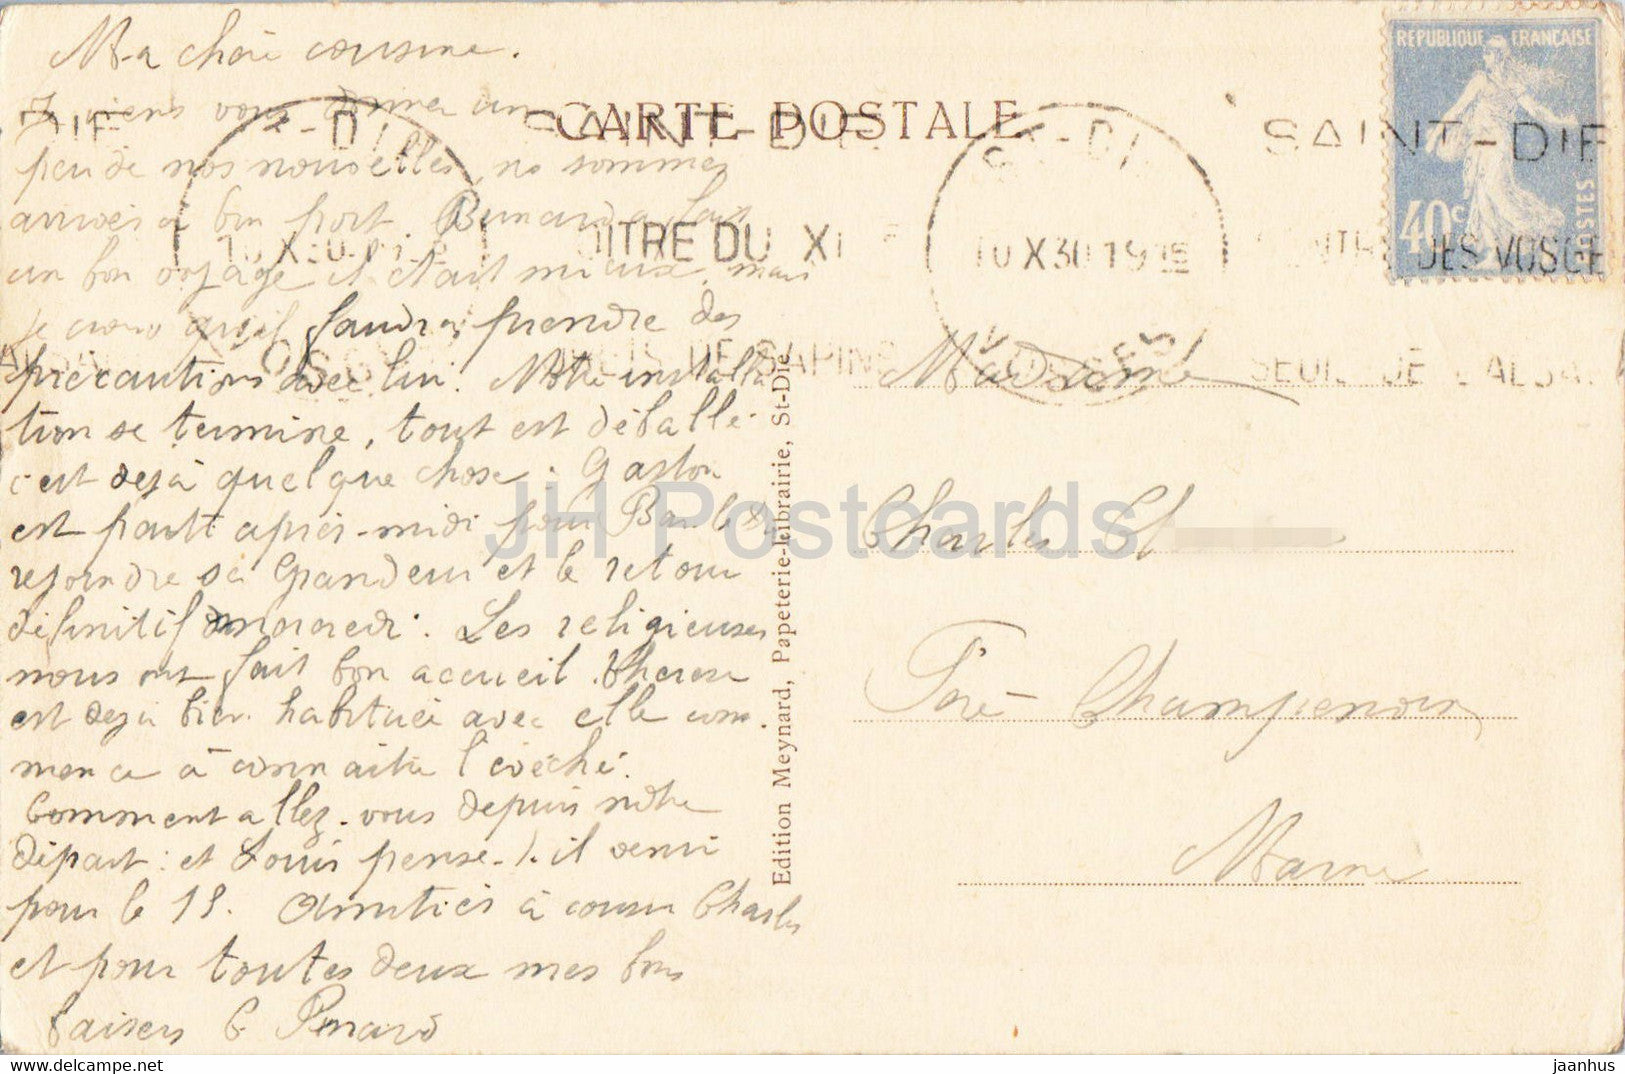 Ma chère cousine.
Je viens vous donner un
peu de nos nouvelles, ns sommes
arrivés à bon port. Benard a fait
un bon voyage il était mieux, mais
je crois qu'il faudra prendre des
précautions avec lui. Notre installa
tion se termine, tout est déballé
c'est déjà quelque chose. Gaston
est partit après-midi pour
rejoindre sa Grandeur et le retour
définitif mercredi. Les religieuses
nous ont fait bon accueil. Therese
est deja bien habituée avec elle com.
mence à connaitre l'évêché.
Comment allez-vous depuis notre
départ: et Louis pense-t-il venir
pour le 19. Amitiés à cousin Charles
et pour toutes deux mes bons
baisers
CARTE POSTALE
REPUBLIQUE FRANÇAISE
40c
POSTES
ST-DIE
10 X 30 19 15
VOSGES
SAINT-DIE
CENTRE DES VOSGES
SEUIL DE L'ALSACE
Edition Meynard, Papeterie-Librairie, St-Die.
Madame
Charles
Fère-Champenoise
Marne
JH Postcards
delcampe.net
jaanhus